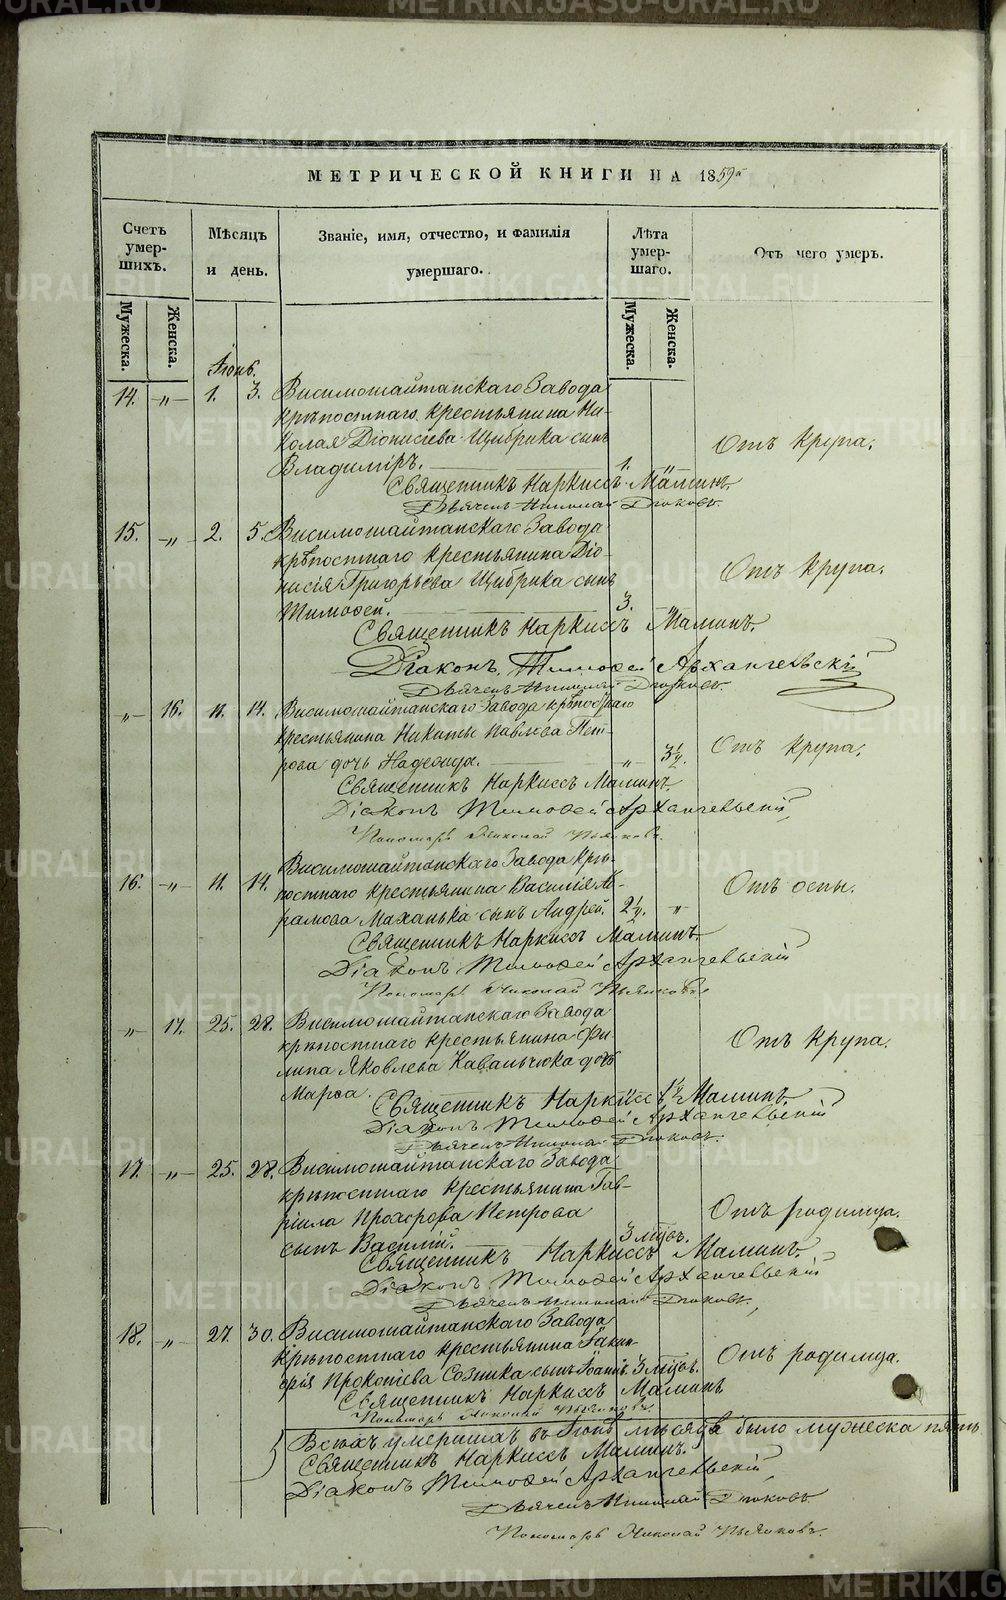 МЕТРИЧЕСКОЙ КНИГИ НА 1859й
Счетъ умер-шихъ.
Мѣсяцъ и день.
Званіе, имя, отчество, и фамилія умершаго.
Лѣта умер-шаго.
Отъ чего умеръ.
Мужеска. Женска.
Мужеска. Женска.
Іюнь.
14. —„— 1. 3. Висимошайтанскаго Завода
крѣпостнаго крестьянина Ни-
колая Діонисіева Щибрика сынъ
Владиміръ. 1. Отъ крупа.
Священникъ Наркиссъ Маминъ.
Дьячекъ Николай Дюковъ.
15. —„— 2. 5. Висимошайтанскаго Завода
крѣпостнаго крестьянина Діо-
нисія Григорьева Щибрика сынъ
Тимоѳей. 3. Отъ крупа.
Священникъ Наркиссъ Маминъ.
Діаконъ Тимоѳей Архангельскій
Дьячекъ Николай Дюковъ.
„— 16. 11. 14. Висимошайтанскаго Завода крѣпостнаго
крестьянина Никиты Павлова Пет-
рова дочь Надежда. „ 3½. Отъ крупа.
Священникъ Наркиссъ Маминъ.
Діаконъ Тимоѳей Архангельскій,
Пономарь Николай
16. —„— 11. 14. Висимошайтанскаго Завода крѣ-
постнаго крестьянина Василія А-
рамова Маханька сынъ Андрей. 2½. „ Отъ оспы.
Священникъ Наркиссъ Маминъ.
Діаконъ Тимоѳей Архангельскій
Пономарь Николай
„— 17. 25. 28. Висимошайтанскаго Завода
крѣпостнаго крестьянина Фи-
липа Яковлева Кавальчюка дочь
Марѳа. 1½ Отъ крупа.
Священникъ Наркиссъ Маминъ.
Діаконъ Тимоѳей Архангельскій
Дьячекъ Николай Дюковъ.
17. —„— 25. 28. Висимошайтанскаго Завода
крѣпостнаго крестьянина Гав-
ріила Прохорова Петрова
сынъ Василій. 3 мѣсс. Отъ родимца.
Священникъ Наркиссъ Маминъ.
Діаконъ Тимоѳей Архангельскій
Дьячекъ Николай Дюковъ,
18. —„— 27. 30. Висимошайтанскаго Завода
Крѣпостнаго крестьянина
Прокопіева Созника сынъ Іоаннъ. 3 мѣсс. Отъ родимца.
Священникъ Наркиссъ Маминъ
Пономарь Николай
Всѣхъ умершихъ въ Іюнѣ мѣсяцѣ было мужеска пять
Священникъ Наркиссъ Маминъ.
Діаконъ Тимоѳей Архангельскій,
Дьячекъ Николай Дюковъ.
Пономарь Николай
METRIKI.GASO-URAL.RU